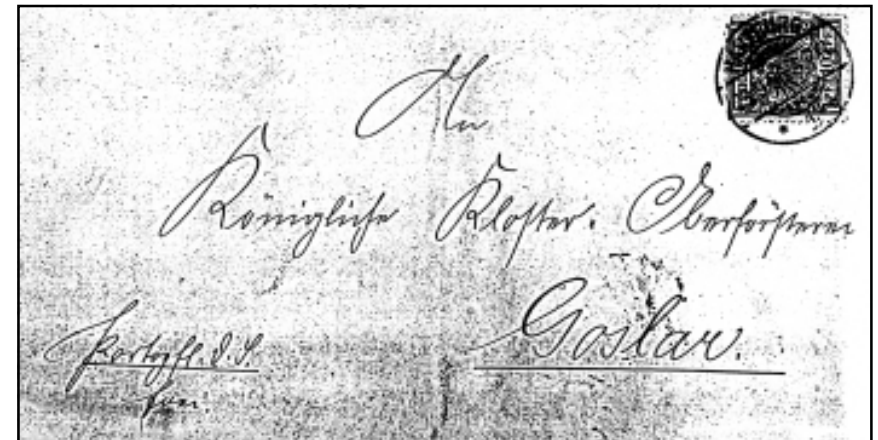 An
Königliche Kloster-Oberförsterei
Goslar.
Portopfl. D. S.
frei.